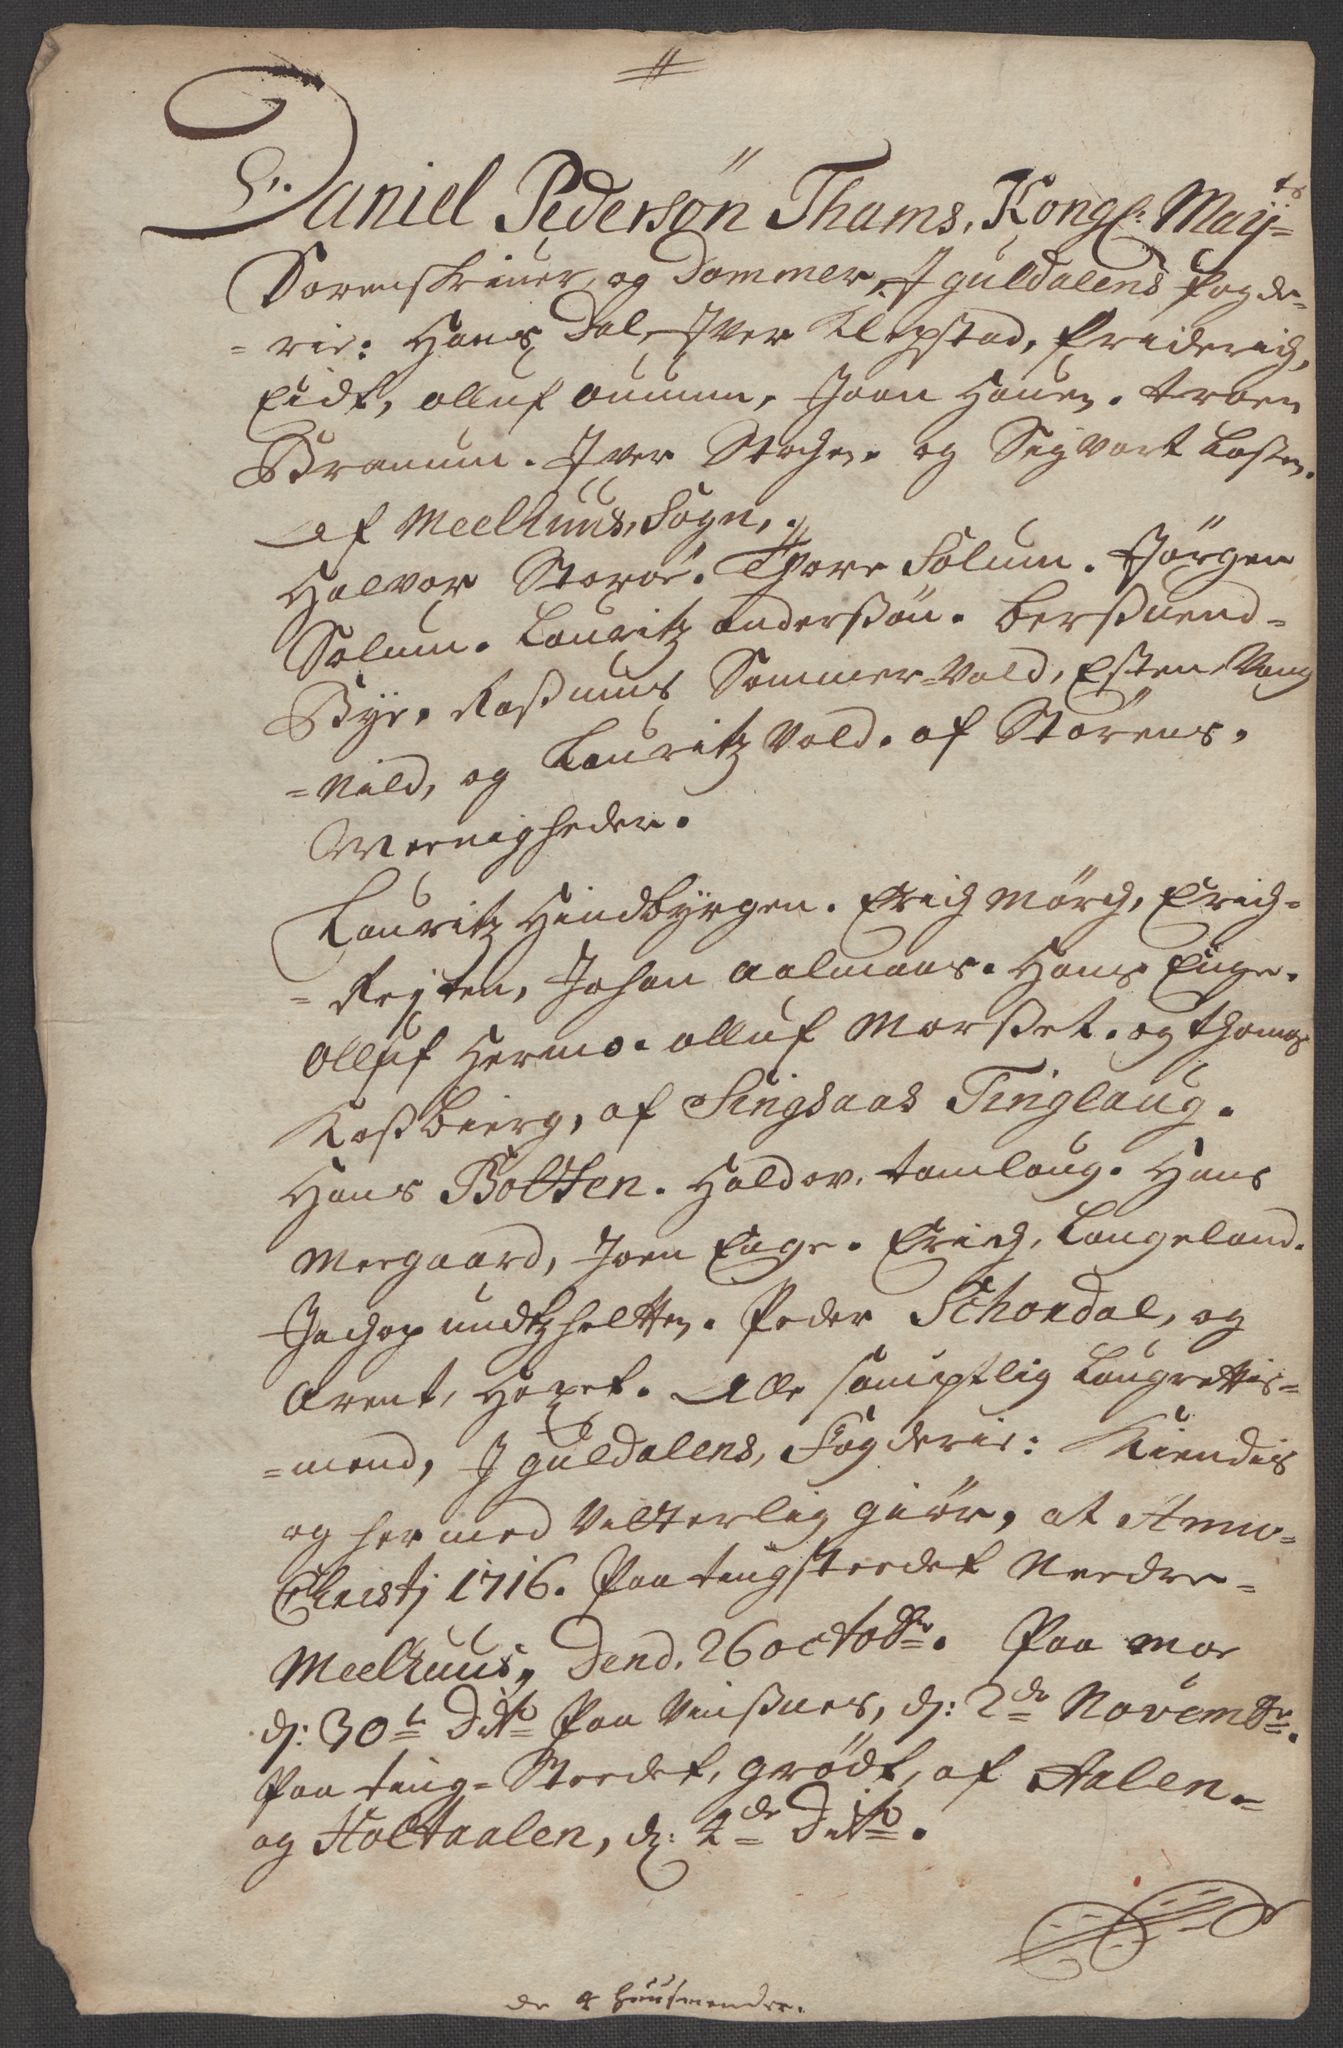 Daniel Pedersøn Thams, Kongl: Maÿ=ts
Sorenskriuer, og Dommer, I guldalens fogde=
=rie: Hans Dal, Iver Klepstad, friderich,
Eidt, olluf ouumn, Joen Hauen. troen
Branum. Iver Stochen. og Sigvart Losen.
Af Meelhuus, Sogn,
Halvor Storøe. Thore Solum. Jørgen
Solum. Lauritz anderßøn. berßuend=
Bÿe. Raßmus Sommer=Vold, Esten Vong
=Nild, og Lauritz Vold. af Størens,
Meenigheder.
Lauritz Hindbÿrgen. Erich Mørch, Erich=
=Reiten, Johan aalmaas. Hans Enge.
olluf Hermo. olluf Morßet. og thomas
Koßbierg, af Singsaas Tinglaug.
Hans Boltten. Haldor, tamlaug. Hans
Moegaard, Joen Eage. Erich, Langeland.
Jachop undtzheltten. Peder Schondal, og
Arent, Hoxet. Alle samptlig Laugrettis=
=mend, I guldalens, Fogderie: Kiendis
og hermed Vitterlig giør, at Anno=
Christj 1716. Paa tingstedet Nedre=
Meelhuus, Dend. 26 octobr. Paa moe
d: 30t Dito Paa Vinßnes, d: 2de Novembr.
Paa ting=Stedet, grødt, af Aalen=
og Holtaalen, d: 4de Dito.
de 4 huusmender.